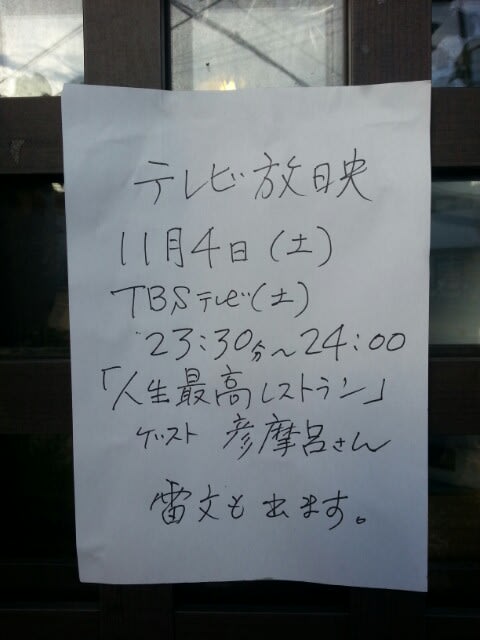 テレビ放映
11月4日(土)
TBSテレビ(土)
23:30分〜24:00
「人生最高レストラン」
ゲスト 彦摩呂さん
雷文も出ます。